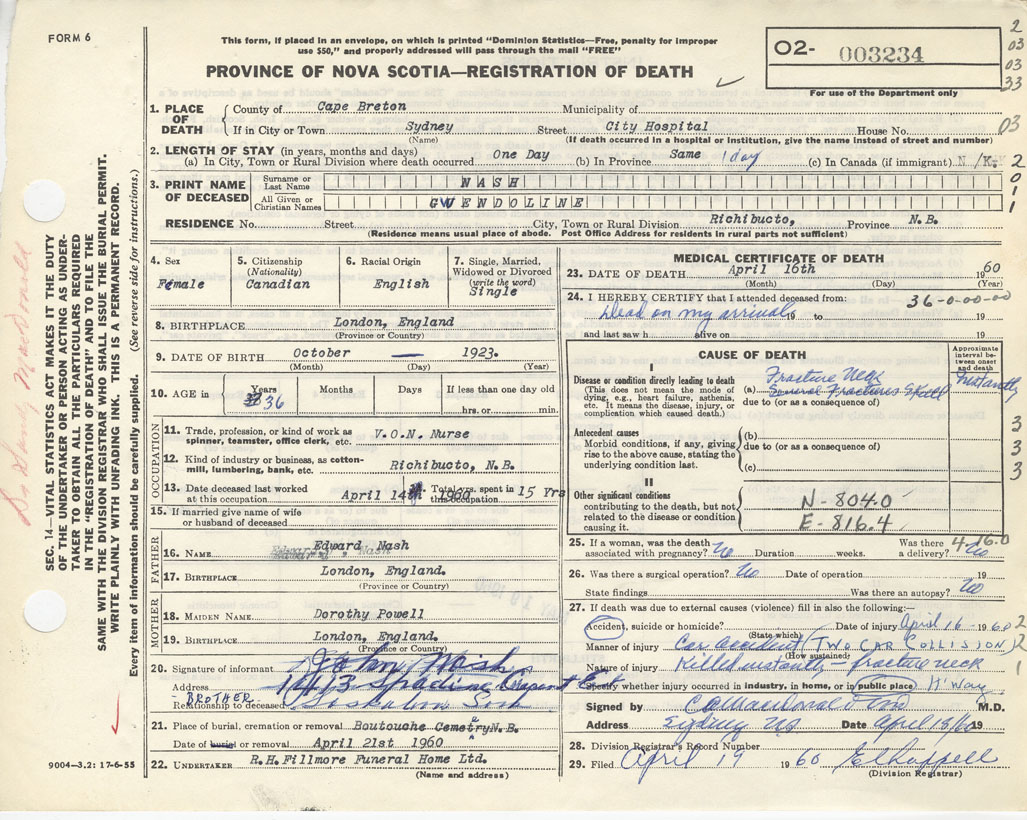 FORM 6
This form, if placed in an envelope, on which is printed "Dominion Statistics—Free, penalty for improper
use $50," and properly addressed will pass through the mail "FREE"
PROVINCE OF NOVA SCOTIA—REGISTRATION OF DEATH
02- 003234
For use of the Department only
2
03
03
33
03
2
0
1
1
1. PLACE OF DEATH
County of Cape Breton Municipality of
If in City or Town Sydney Street City Hospital House No.
(Name) (If death occurred in a hospital or institution, give the name instead of street and number)
2. LENGTH OF STAY (in years, months and days)
(a) In City, Town or Rural Division where death occurred One Day (b) In Province Same 1 day (c) In Canada (if immigrant)
3. PRINT NAME OF DECEASED
Surname or Last Name NASH
All Given or Christian Names GWENDOLINE
RESIDENCE No. Street City, Town or Rural Division Richibucto, Province N.B.
(Residence means usual place of abode. Post Office Address for residents in rural parts not sufficient)
4. Sex
Female
5. Citizenship
(Nationality)
Canadian
6. Racial Origin
English
7. Single, Married,
Widowed or Divorced
(write the word)
Single
8. BIRTHPLACE London, England
(Province or Country)
9. DATE OF BIRTH October — 1923.
(Month) (Day) (Year)
10. AGE in Years Months Days If less than one day old
36 hrs. or min.
OCCUPATION
11. Trade, profession, or kind of work as
spinner, teamster, office clerk, etc. V.O.N. Nurse
12. Kind of industry or business, as cotton-
mill, lumbering, bank, etc. Richibucto, N.B.
13. Date deceased last worked
at this occupation April 14th 1960
14. Total yrs. spent in
this occupation 15 Yrs
15. If married give name of wife
or husband of deceased
FATHER
16. NAME Edward Nash
17. BIRTHPLACE London, England.
(Province or Country)
MOTHER
18. MAIDEN NAME Dorothy Powell
19. BIRTHPLACE London, England.
(Province or Country)
20. Signature of informant John Nash
Address 1413 Spadina Crescent East
Relationship to deceased BROTHER Saskatoon Sask
21. Place of burial, cremation or removal Boutouche Cemetry N.B.
Date of burial or removal April 21st 1960
22. UNDERTAKER R.H. Fillmore Funeral Home Ltd.
(Name and address)
MEDICAL CERTIFICATE OF DEATH
23. DATE OF DEATH April 16th 1960
(Month) (Day) (Year)
24. I HEREBY CERTIFY that I attended deceased from: 36-0-00-00
Dead on my arrival 19 to 19
and last saw h alive on 19
CAUSE OF DEATH
Approximate
interval be-
tween onset
and death
I
Disease or condition directly leading to death
(This does not mean the mode of
dying, e.g., heart failure, asthenia,
etc. It means the disease, injury, or
complication which caused death.)
Fracture Neck
(a) Fractures Skull Instantly
due to (or as a consequence of)
Antecedent causes
Morbid conditions, if any, giving
rise to the above cause, stating the
underlying condition last.
(b)
due to (or as a consequence of)
(c)
3
3
3
II
Other significant conditions
contributing to the death, but not
related to the disease or condition
causing it.
N-804.0
E-816.4
25. If a woman, was the death
associated with pregnancy? No Duration weeks. Was there
a delivery? No
26. Was there a surgical operation? No Date of operation 19
State findings Was there an autopsy? No
27. If death was due to external causes (violence) fill in also the following:—
Accident, suicide or homicide? Date of injury April 16 - 1960
(State which)
Manner of injury Car accident (TWO CAR COLLISION)
(How sustained)
Nature of injury Killed instantly - fracture neck
Specify whether injury occurred in industry, in home, or in public place H'Way
Signed by M.D.
Address Sydney NS Date April 18/60 19
28. Division Registrar's Record Number
29. Filed April 19 1960
(Division Registrar)
2
2
1
SEC. 14—VITAL STATISTICS ACT MAKES IT THE DUTY
OF THE UNDERTAKER OR PERSON ACTING AS UNDER-
TAKER TO OBTAIN ALL THE PARTICULARS REQUIRED
IN THE "REGISTRATION OF DEATH" AND TO FILE THE
SAME WITH THE DIVISION REGISTRAR WHO SHALL ISSUE THE BURIAL PERMIT.
WRITE PLAINLY WITH UNFADING INK. THIS IS A PERMANENT RECORD.
Every item of information should be carefully supplied. (See reverse side for instructions.)
9004—3.2: 17-6-55